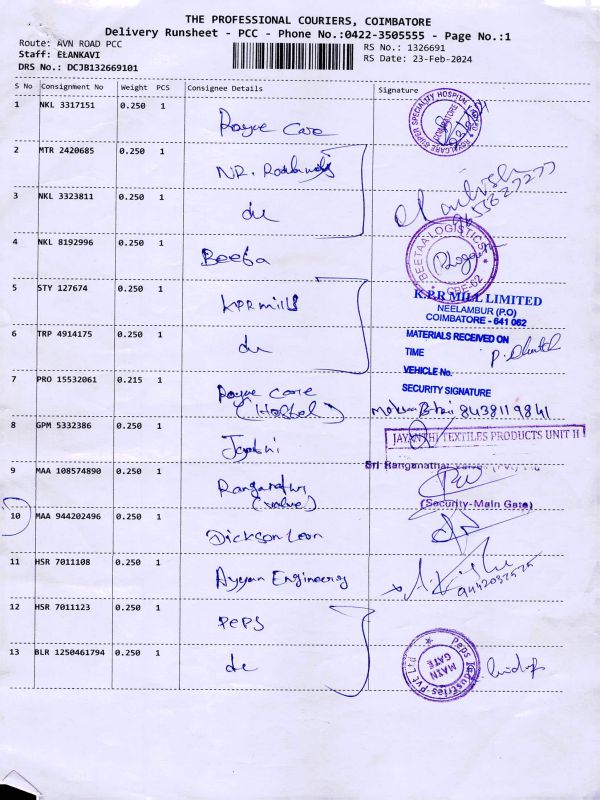 THE PROFESSIONAL COURIERS, COIMBATORE
Delivery Runsheet - PCC - Phone No.:0422-3505555 - Page No.:1
Route: AVN ROAD PCC
RS No.: 1326691
Staff: ELANKAVI
RS Date: 23-Feb-2024
DRS No.: DCJB132669101
S No Consignment No Weight PCS Consignee Details Signature
1 NKL 3317151 0.250 1 Royal Care
2 MTR 2420685 0.250 1 NR.
3 NKL 3323811 0.250 1 do
4 NKL 8192996 0.250 1 Beeta
BEETAA LOGISTICS
CBE-62
5 STY 127674 0.250 1 KPR mills
K.P.R MILL LIMITED
NEELAMBUR (P.O)
COIMBATORE - 641 062
6 TRP 4914175 0.250 1 do
MATERIALS RECEIVED ON
TIME
VEHICLE No.
SECURITY SIGNATURE
7 PRO 15532061 0.215 1 Royal Care
(Hostel)
8438119841
8 GPM 5332386 0.250 1 Jayanthi
JAYANTHI TEXTILES PRODUCTS UNIT II
9 MAA 108574890 0.250 1 Ranganathar
(valve)
Sri Ranganathar
(Security-Main Gate)
10 MAA 944202496 0.250 1 Dickson Leon
11 HSR 7011108 0.250 1 Ayyan Engineering
9442032525
12 HSR 7011123 0.250 1 PePS
13 BLR 1250461794 0.250 1 do
Peps Industries Pvt Ltd
MAIN
GATE